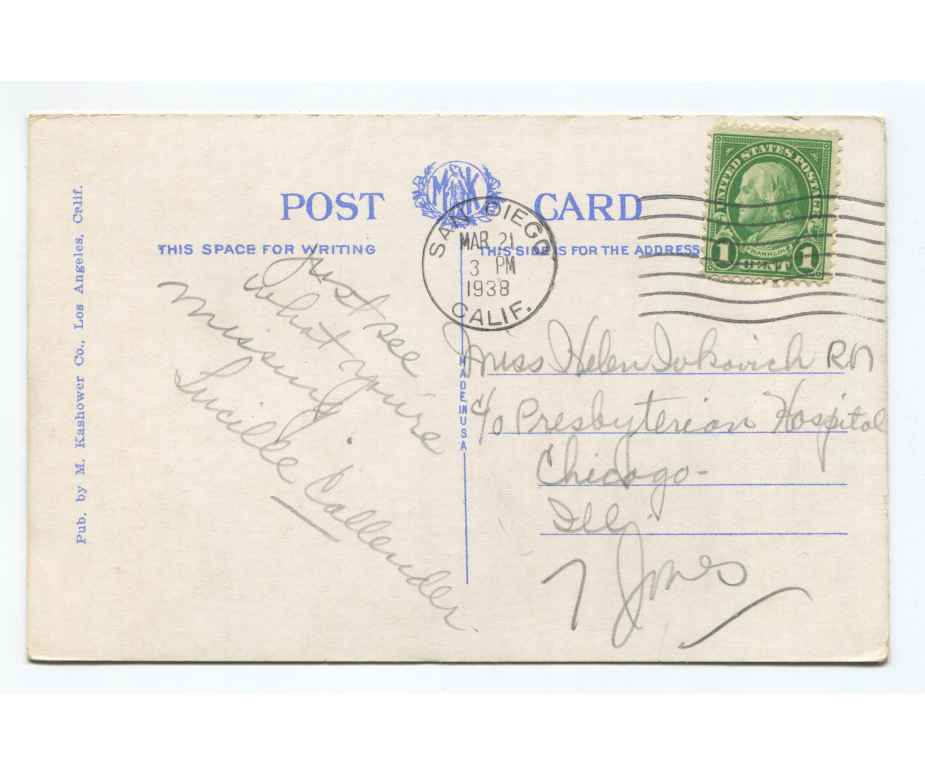 POST CARD
MK
THIS SPACE FOR WRITING
THIS SIDE IS FOR THE ADDRESS
UNITED STATES POSTAGE
FRANKLIN
1 CENT 1
SAN DIEGO
MAR 21
3 PM
1938
CALIF.
Pub. by M. Kashower Co., Los Angeles, Calif.
MADE IN USA
Just see
what you're
missing
Lucille Callender
Miss Helen Ivkovich RN
c/o Presbyterian Hospital
Chicago-
Ill.
7 Jones